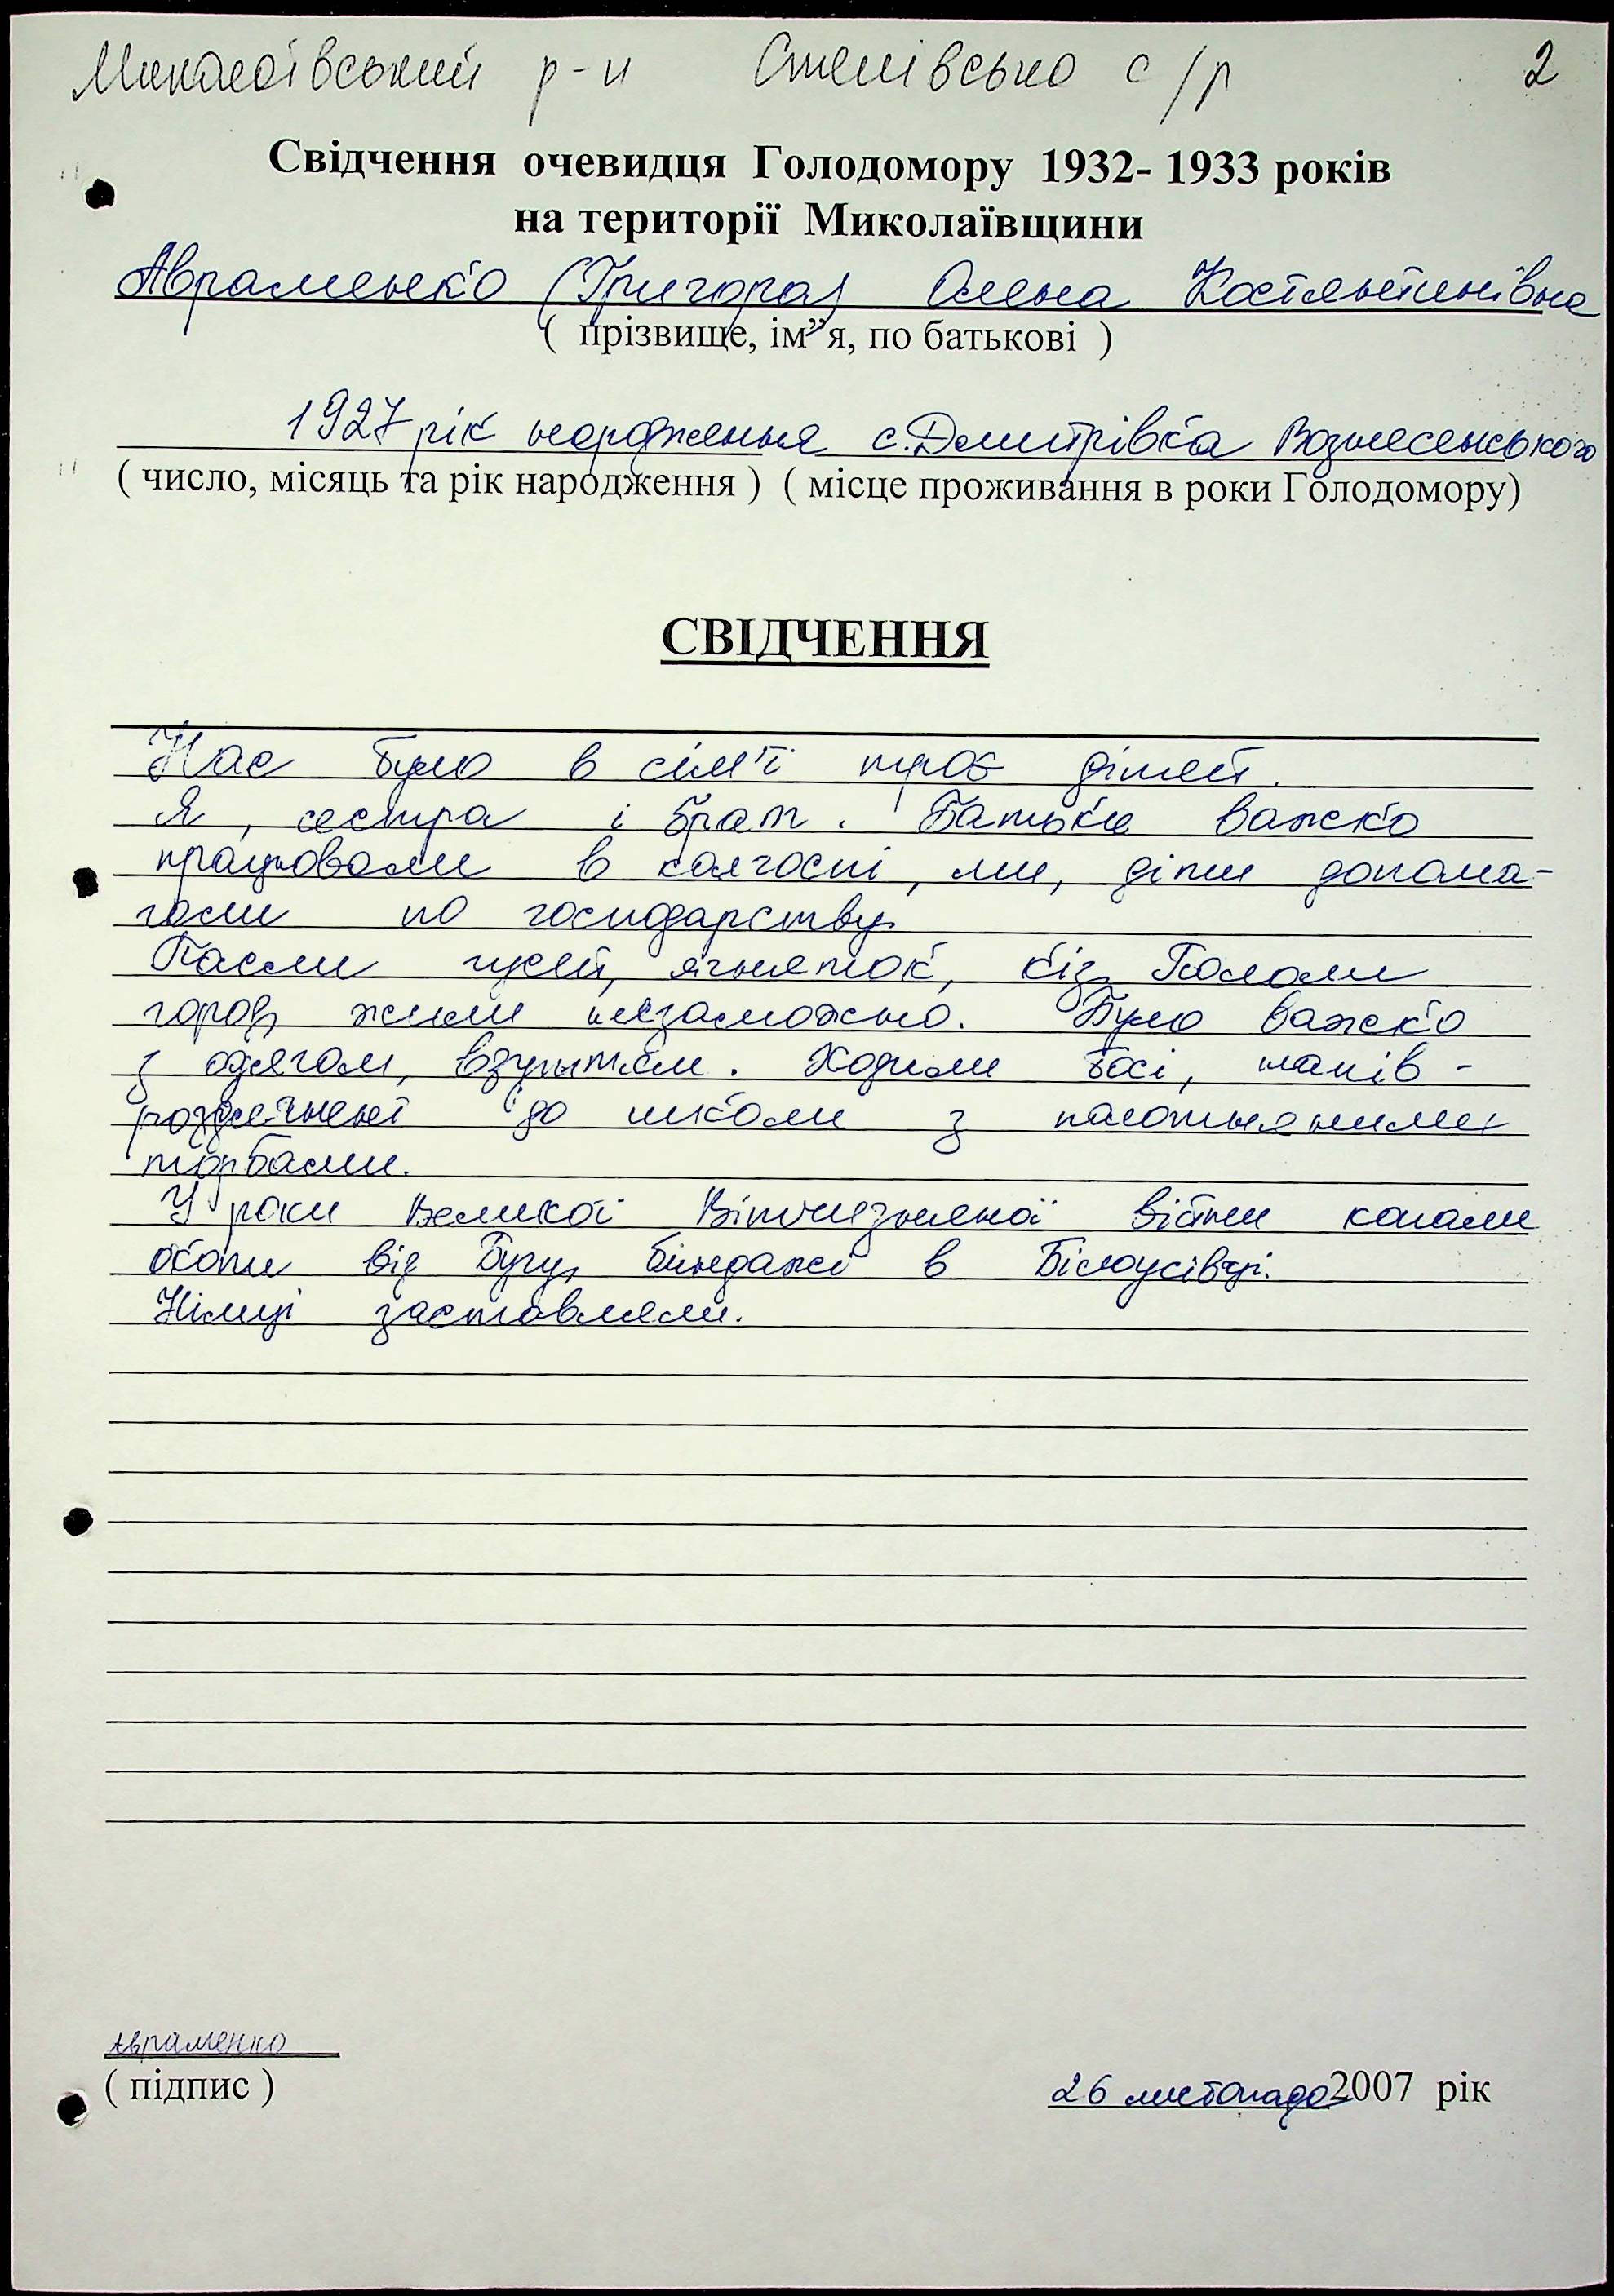 Миколаївський р-н Степівська с/р 2
Свідчення очевидця Голодомору 1932- 1933 років
на території Миколаївщини
Авраменко (Григора) Олена Костянтинівна
( прізвище, ім”я, по батькові )
1927 рік народження с. Дмитрівка Вознесенського
( число, місяць та рік народження ) ( місце проживання в роки Голодомору)
СВІДЧЕННЯ
Нас було в сім'ї троє дітей.
Я, сестра і брат. Батьки важко
працювали в колгоспі, ми, діти допома-
гали по господарству.
Пасли гусей, ягняток, кіз. Пололи
город, жили незаможно. Було важко
з одягом, взуттям. Ходили босі, напів-
роздягнені до школи з полотняними
торбами.
У роки Великої Вітчизняної війни копали
окопи від Бугу, бліндажі в Білоусівці.
Німці заставляли.
Авраменко
( підпис )
26 листопада 2007 рік